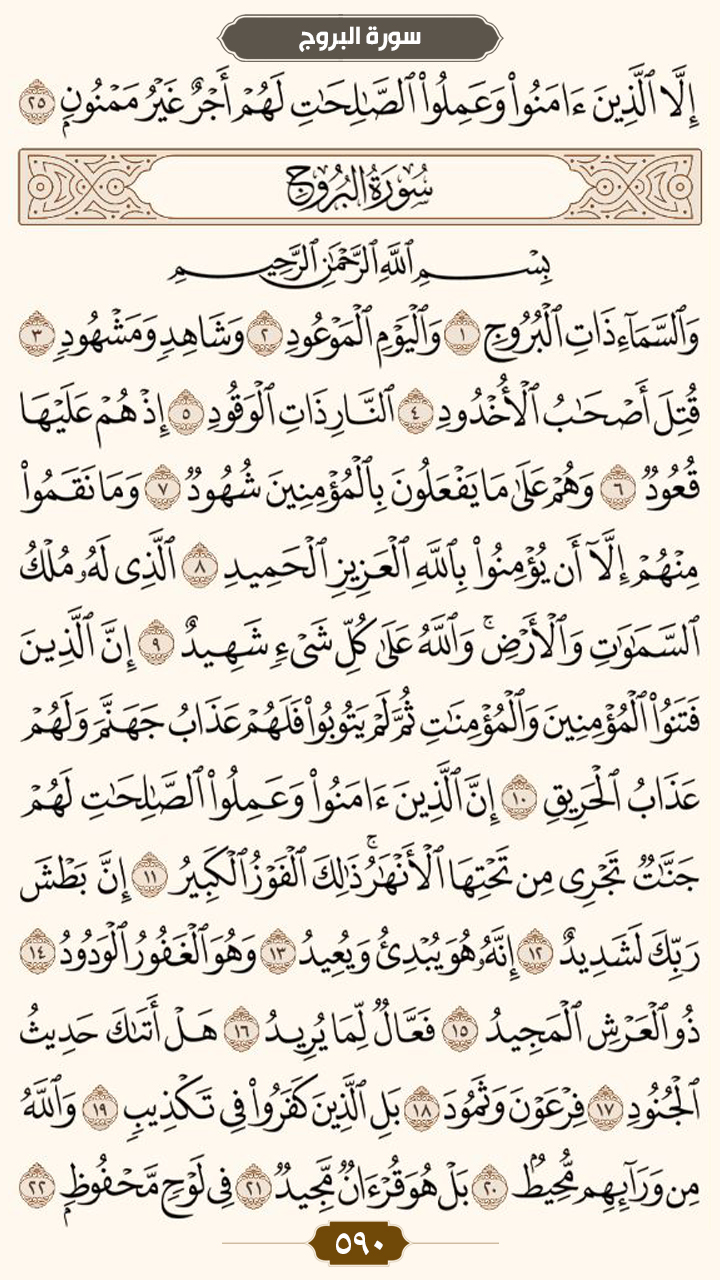 سورة البروج
إِلَّا ٱلَّذِينَ ءَامَنُوا۟ وَعَمِلُوا۟ ٱلصَّـٰلِحَـٰتِ لَهُمْ أَجْرٌ غَيْرُ مَمْنُونٍۭ ٢٥
سُورَةُ البُرُوجِ
بِسْمِ ٱللَّهِ ٱلرَّحْمَـٰنِ ٱلرَّحِيمِ
وَٱلسَّمَآءِ ذَاتِ ٱلْبُرُوجِ ١ وَٱلْيَوْمِ ٱلْمَوْعُودِ ٢ وَشَاهِدٍ وَمَشْهُودٍ ٣
قُتِلَ أَصْحَـٰبُ ٱلْأُخْدُودِ ٤ ٱلنَّارِ ذَاتِ ٱلْوَقُودِ ٥ إِذْ هُمْ عَلَيْهَا
قُعُودٌ ٦ وَهُمْ عَلَىٰ مَا يَفْعَلُونَ بِٱلْمُؤْمِنِينَ شُهُودٌ ٧ وَمَا نَقَمُوا۟
مِنْهُمْ إِلَّآ أَن يُؤْمِنُوا۟ بِٱللَّهِ ٱلْعَزِيزِ ٱلْحَمِيدِ ٨ ٱلَّذِى لَهُۥ مُلْكُ
ٱلسَّمَـٰوَٰتِ وَٱلْأَرْضِ ۚ وَٱللَّهُ عَلَىٰ كُلِّ شَىْءٍ شَهِيدٌ ٩ إِنَّ ٱلَّذِينَ
فَتَنُوا۟ ٱلْمُؤْمِنِينَ وَٱلْمُؤْمِنَـٰتِ ثُمَّ لَمْ يَتُوبُوا۟ فَلَهُمْ عَذَابُ جَهَنَّمَ وَلَهُمْ
عَذَابُ ٱلْحَرِيقِ ١٠ إِنَّ ٱلَّذِينَ ءَامَنُوا۟ وَعَمِلُوا۟ ٱلصَّـٰلِحَـٰتِ لَهُمْ
جَنَّـٰتٌ تَجْرِى مِن تَحْتِهَا ٱلْأَنْهَـٰرُ ۚ ذَٰلِكَ ٱلْفَوْزُ ٱلْكَبِيرُ ١١ إِنَّ بَطْشَ
رَبِّكَ لَشَدِيدٌ ١٢ إِنَّهُۥ هُوَ يُبْدِئُ وَيُعِيدُ ١٣ وَهُوَ ٱلْغَفُورُ ٱلْوَدُودُ ١٤
ذُو ٱلْعَرْشِ ٱلْمَجِيدُ ١٥ فَعَّالٌ لِّمَا يُرِيدُ ١٦ هَلْ أَتَىٰكَ حَدِيثُ
ٱلْجُنُودِ ١٧ فِرْعَوْنَ وَثَمُودَ ١٨ بَلِ ٱلَّذِينَ كَفَرُوا۟ فِى تَكْذِيبٍ ١٩ وَٱللَّهُ
مِن وَرَآئِهِم مُّحِيطٌۢ ٢٠ بَلْ هُوَ قُرْءَانٌ مَّجِيدٌ ٢١ فِى لَوْحٍ مَّحْفُوظٍۭ ٢٢
٥٩٠